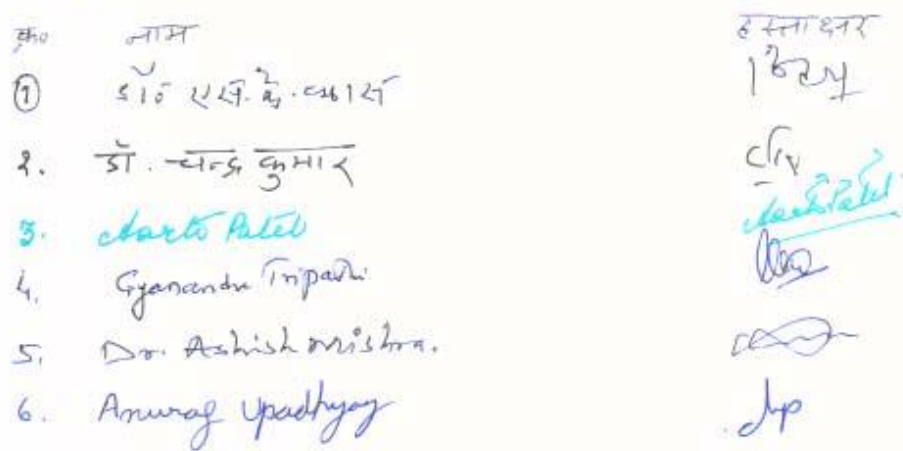 क्र० नाम हस्ताक्षर
① डॉ० एस. के.
2. डॉ. चन्द्र कुमार
3. Aarti Patel Aarti Patel
4. Gyanendra Tripathi
5. Dr. Ashish Mishra.
6. Anurag Upadhyay